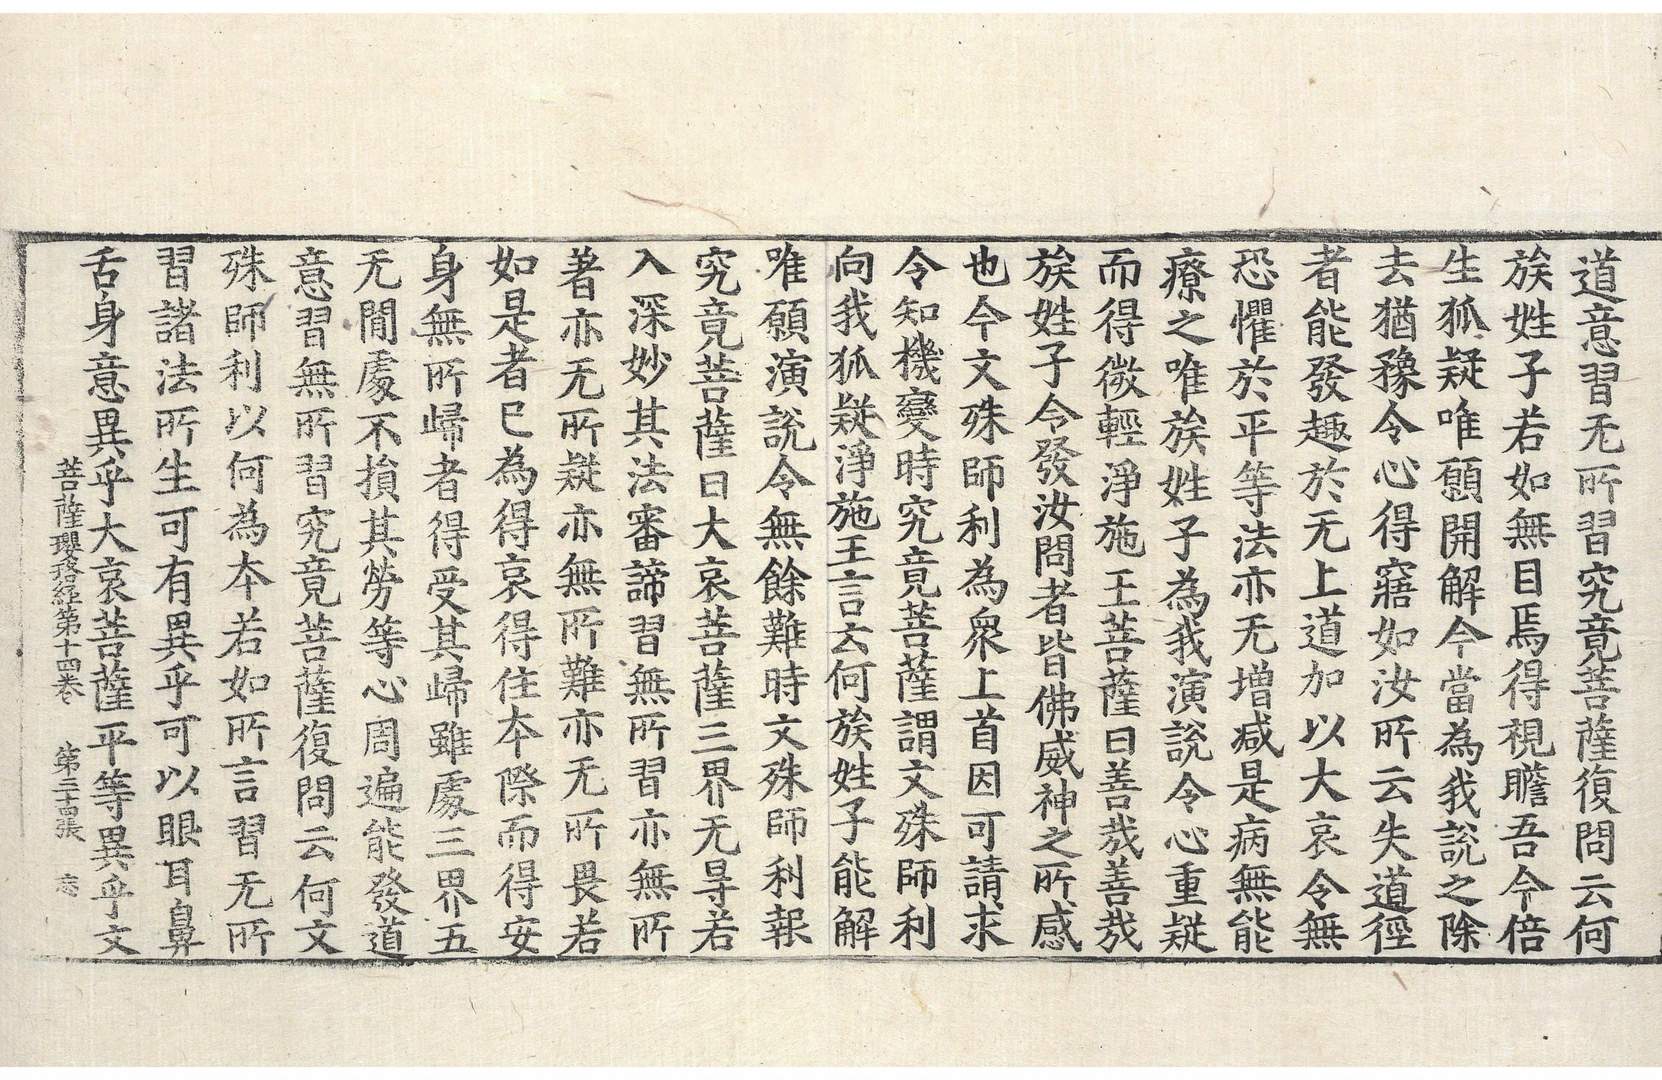 道意習无所習究竟菩薩復問云何
族姓子若如無目焉得視瞻吾今倍
生狐疑唯願開解今當為我說之除
去猶豫令心得寤如汝所云失道徑
者能發趣於无上道加以大哀令無
恐懼於平等法亦无增減是病無能
療之唯族姓子為我演說令心重疑
而得微輕淨施王菩薩曰善哉善哉
族姓子今發汝問者皆佛威神之所感
也今文殊師利為衆上首因可請求
令知機變時究竟菩薩謂文殊師利
向我狐疑淨施王言云何族姓子能解
唯願演說令無餘難時文殊師利報
究竟菩薩曰大哀菩薩三界无㝵若
入深妙其法審諦習無所習亦無所
著亦无所疑亦無所難亦无所畏若
如是者已為得哀得住本際而得安
身無所歸者得受其歸雖處三界五
无閒處不損其勞等心周遍能發道
意習無所習究竟菩薩復問云何文
殊師利以何為本若如所言習无所
習諸法所生可有異乎可以眼耳鼻
舌身意異乎大哀菩薩平等異乎文
菩薩瓔珞經第十四卷 第三十四張 忘